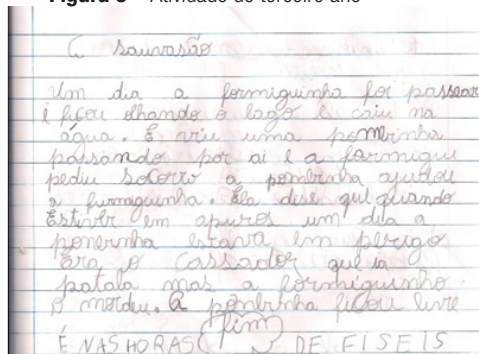 Figura 3 – Atividade do terceiro ano
A sauvasão
Um dia a formiguinha foi passear
e ficou olhando o lago e caiu na
água. E viu uma pombinha
passando por ai e a formigui
pediu socorro a pombinha ajudou
a furmiguinha. Ela dise que quando
Estiver em apuros um dia a
pombinha estava em perigo
Era o cassador que ia
patala mas a formiguinho
o mordeu. A pombinha ficou livre
É NAS HORAS fim DE EISEIS